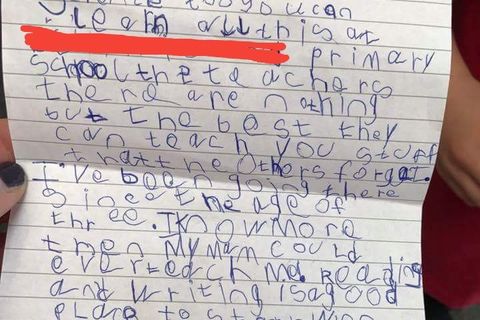 too you can
learn all this at
primary
school the teachers
there are nothing
but the best they
can teach you stuff
that the others forgot.
I've been going there
since the age of
three. I know more
then my mam could
ever teach me. reading
and writing is a good
place to start